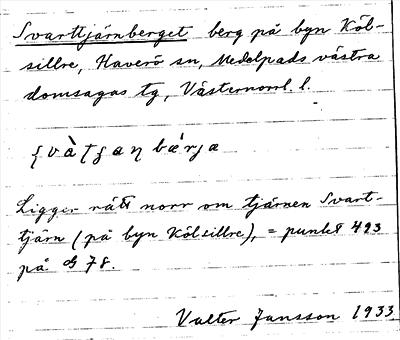 Svarttjärnberget berg på byn Köl-
sillre, Haverö sn, Medelpads västra
domsagas tg, Västernorrl. l.
Ligger rätt norr om tjärnen Svart-
tjärn (på byn Kölsillre), = punkt 493
på G 78.
Valter Jansson 1933